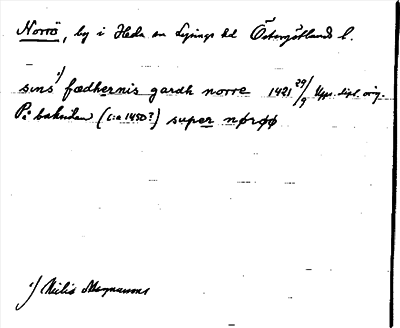 Norrö, by i Heda sn Lysings hd Östergötlands l.
sins 1) fædhernis gardh norre 1421 29/9 Upps. dipl. orig.
På baksidan (c:a 1450?) super nørøø
1) Nielis Magnussons